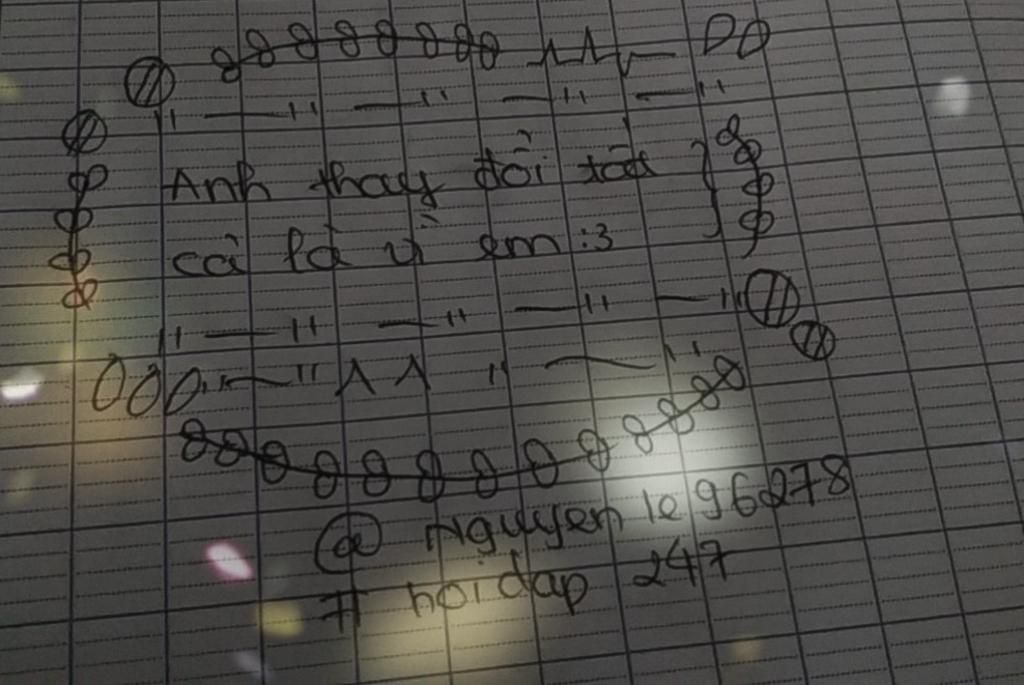 Anh thay đổi tất
cả là vì em :3
@ nguyen le 96278
# hoi dap 247